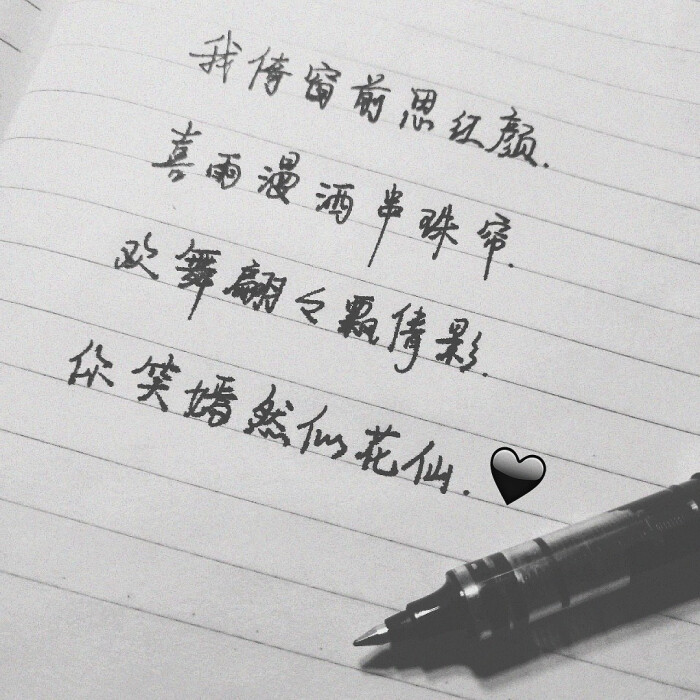 我倚窗前思红颜.
喜雨漫洒串珠帘.
欢舞翩々飘倩影.
你笑嫣然似花仙.